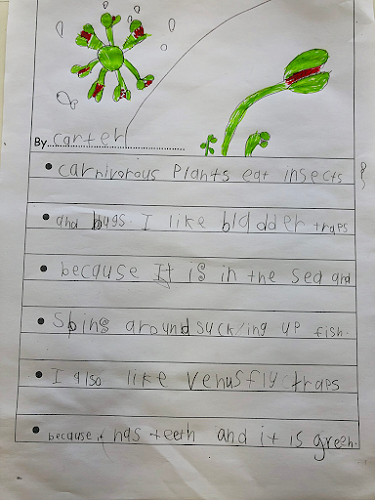 By carter
carnivorous Plants eat insects
and bugs. I like bladder traps
because It is in the sea and
Spins around suck/ing up fish.
I also like Venus fly traps
because it has teeth and it is green.